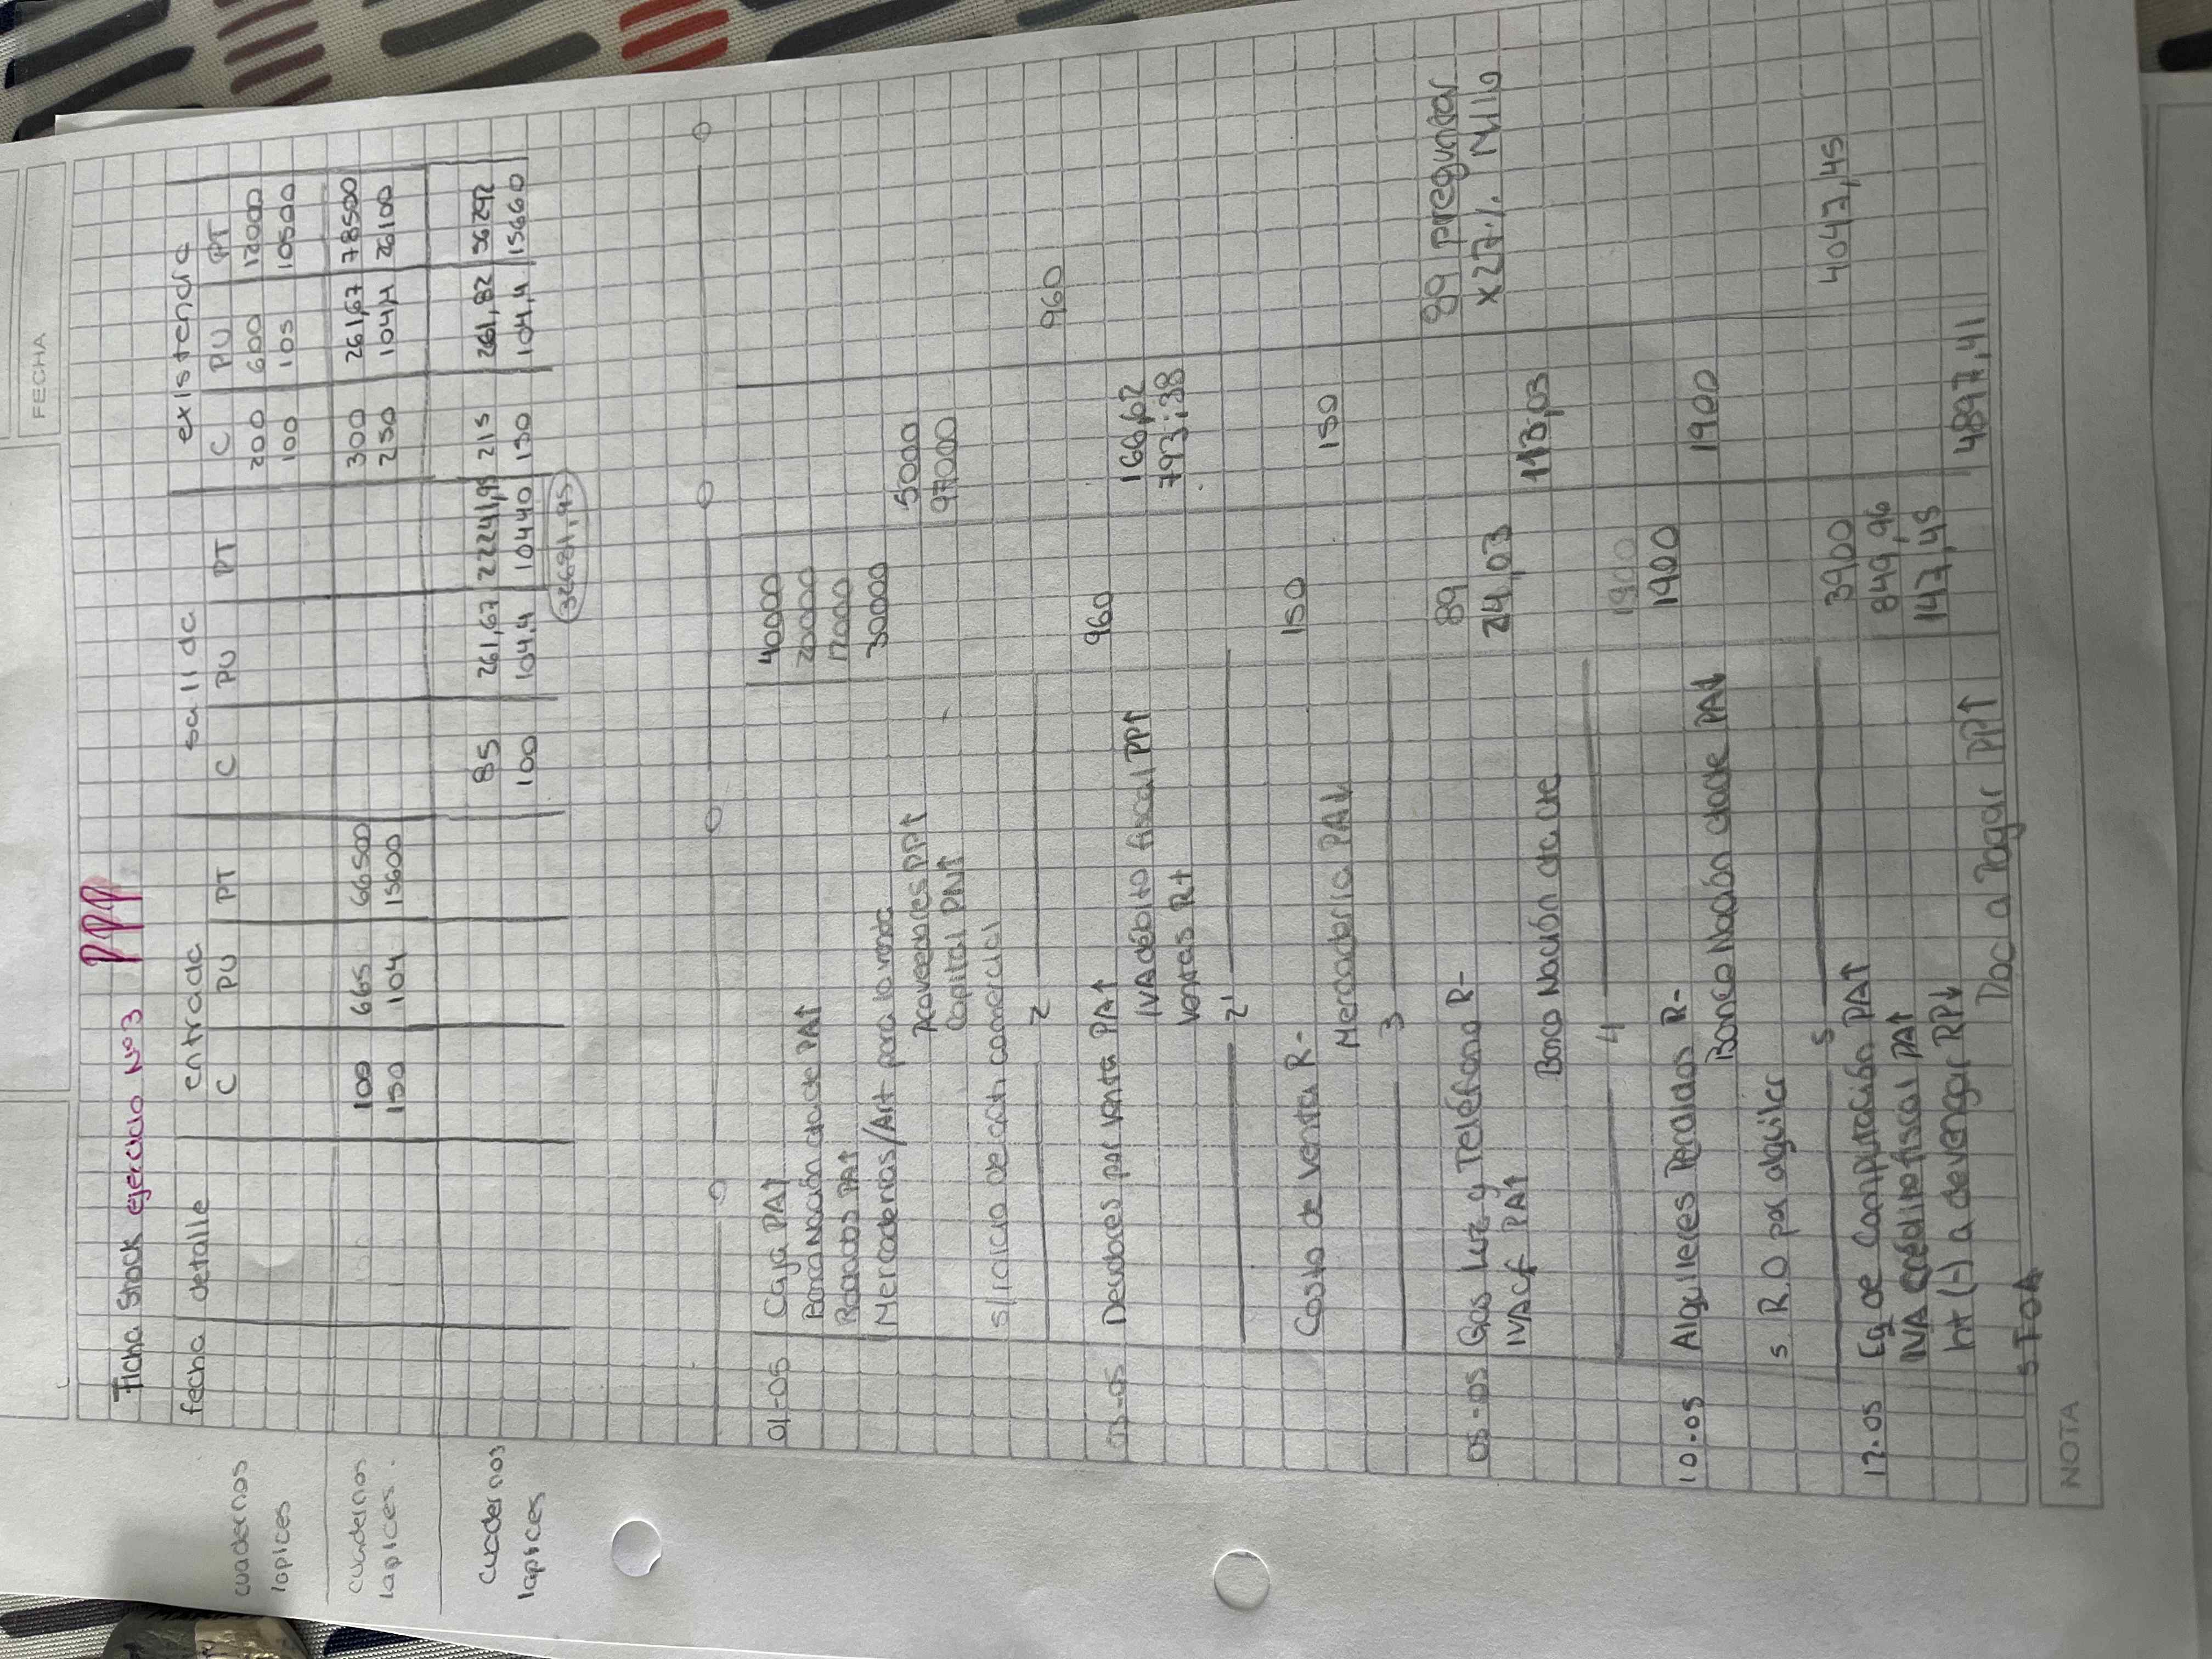 FECHA
Ficha Stock ejercicio N°3 PPP
fecha detalle entrada salida existencia
C PU PT C PU PT C PU PT
cuadernos 200 600 12000
lapices 100 105 10500
cuadernos 100 665 66500 300 261,67 78500
lapices. 150 104 15600 250 104,4 26100
cuadernos 85 261,67 22241,95 215 261,82 56292
lapices 100 104.4 10440 150 104.4 15660
32681,95
01-05 Caja PA↑ 40000
Banco Nación cta cte PA↑ 20000
Rodados PA↑ 12000
Mercaderias/Art para la venta 30000
Proveedores PP↑ 5000
Capital PN↑ 97000
s/inicio de act comercial
2
03-05 Deudores por venta PA↑ 960 960
IVA débito fiscal PP↑ 166,62
Ventas R+ 793,38
2'
Costo de Venta R- 150
Mercadería PA↓ 150
3
05-05 Gas Luz y Teléfono R- 89 89 preguntar
IVA cf PA↑ 24,03 x27% Millo
Banco Nación cta cte 113,03
4
1900
10-05 Alquileres Perdidos R- 1900
Banco Nación cta cte PA↓ 1900
s R.O por alquiler
5
12-05 Eq de Computación PA↑ 3900 4042,45
IVA crédito fiscal PA↑ 849,96
Int (-) a devengar RP↓ 147,45
Doc a Pagar PP↑ 4897,41
s FOA
NOTA